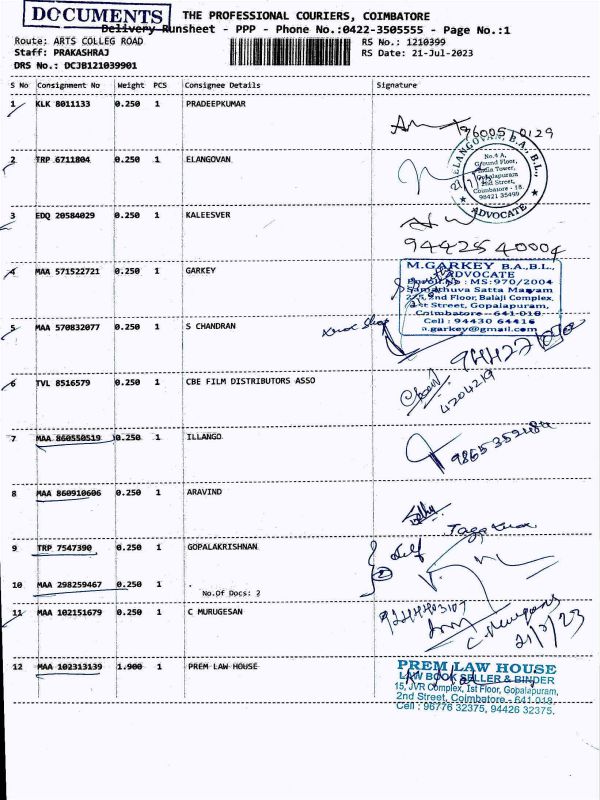 DOCUMENTS
THE PROFESSIONAL COURIERS, COIMBATORE
Delivery Runsheet - PPP - Phone No.:0422-3505555 - Page No.:1
Route: ARTS COLLEG ROAD RS No.: 1210399
Staff: PRAKASHRAJ RS Date: 21-Jul-2023
DRS No.: DCJB121039901
S No Consignment No Weight PCS Consignee Details Signature
1 KLK 8011133 0.250 1 PRADEEPKUMAR
ELANGOVAN, B.A., B.L.,
No.4 A,
Ground Floor,
India Tower,
Gopalapuram
2nd Street,
Coimbatore - 18.
98421 35499
ADVOCATE
2 TRP 6711804 0.250 1 ELANGOVAN
3 EDQ 20584029 0.250 1 KALEESVER
94425 40004
4 MAA 571522721 0.250 1 GARKEY
M.GARKEY B.A.,B.L.,
ADVOCATE
Enroll No : MS:970/2004
Samathuva Satta Manram
2/5, 2nd Floor, Balaji Complex,
1st Street, Gopalapuram,
Coimbatore - 641-018.
Cell : 94430 64416
a.garkey@gmail.com
5 MAA 570832077 0.250 1 S CHANDRAN
6 TVL 8516579 0.250 1 CBE FILM DISTRIBUTORS ASSO
4204219
7 MAA 860550519 0.250 1 ILLANGO
8 MAA 860910606 0.250 1 ARAVIND
9 TRP 7547390 0.250 1 GOPALAKRISHNAN
10 MAA 298259467 0.250 1 .
No.Of Docs: 2
11 MAA 102151679 0.250 1 C MURUGESAN
C. Murugesan
21/7/23
12 MAA 102313139 1.900 1 PREM LAW HOUSE
PREM LAW HOUSE
LAW BOOK SELLER & BINDER
15, JVR Complex, Ist Floor, Gopalapuram,
2nd Street, Coimbatore - 641 018.
Cell : 96776 32375, 94426 32375.